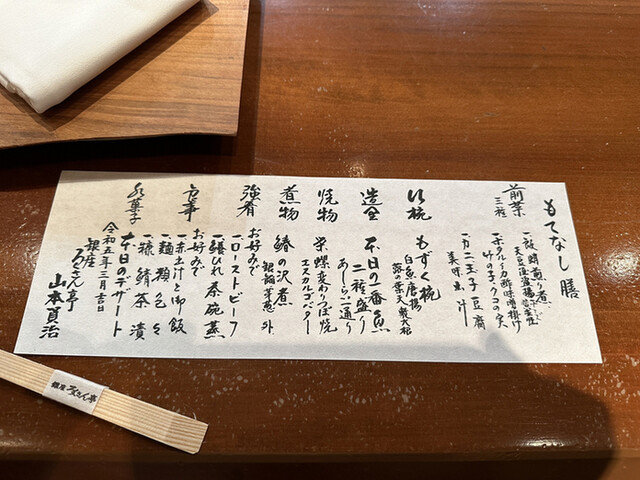 もてなし膳
前菜
三種
一、ホタルイカ酢味噌掛け
竹の子
一、カニ玉子豆腐
美味出汁
もずく椀
白魚唐揚
蕗の葉天
造里
本日の一番魚
二種盛り
あしらい一通り
焼物
栄螺変わりつぼ焼
エスカルゴバター
煮物
鰆の沢煮
強肴
お好みで
一、ローストビーフ
一、鱶ひれ茶碗蒸
お食事
お好みで
一、赤土汁と御飯
一、麺類色々
一、胡麻鯖茶漬
水菓子
本日のデザート
令和五年三月吉日
銀座 ろくさん亭
山本真治
銀座 ろくさん亭